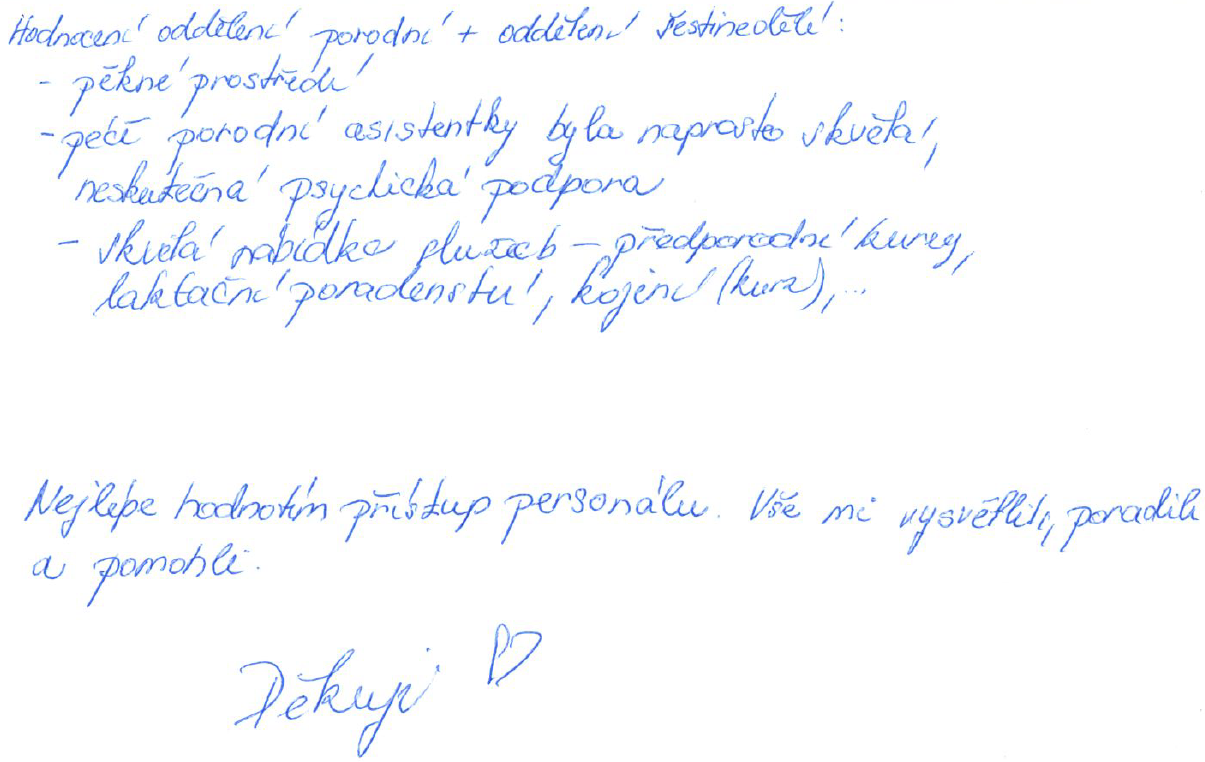 Hodnocení oddělení porodní + oddělení šestinedělí:
- pěkné prostředí
- péčě porodní asistentky byla naprosto skvělá,
neskutečná psychická podpora
- skvělá nabídka služeb - předporodní kurzy,
laktační poradenství, kojení (kurz),...
Nejlépe hodnotím přístup personálu. Vše mi vysvětlili, poradili
a pomohli.
Děkuji ♡